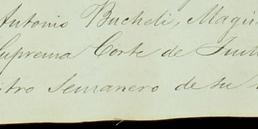 Antonio Bucheli, Magis
Suprema Corte de Justi
tro Semanero de su